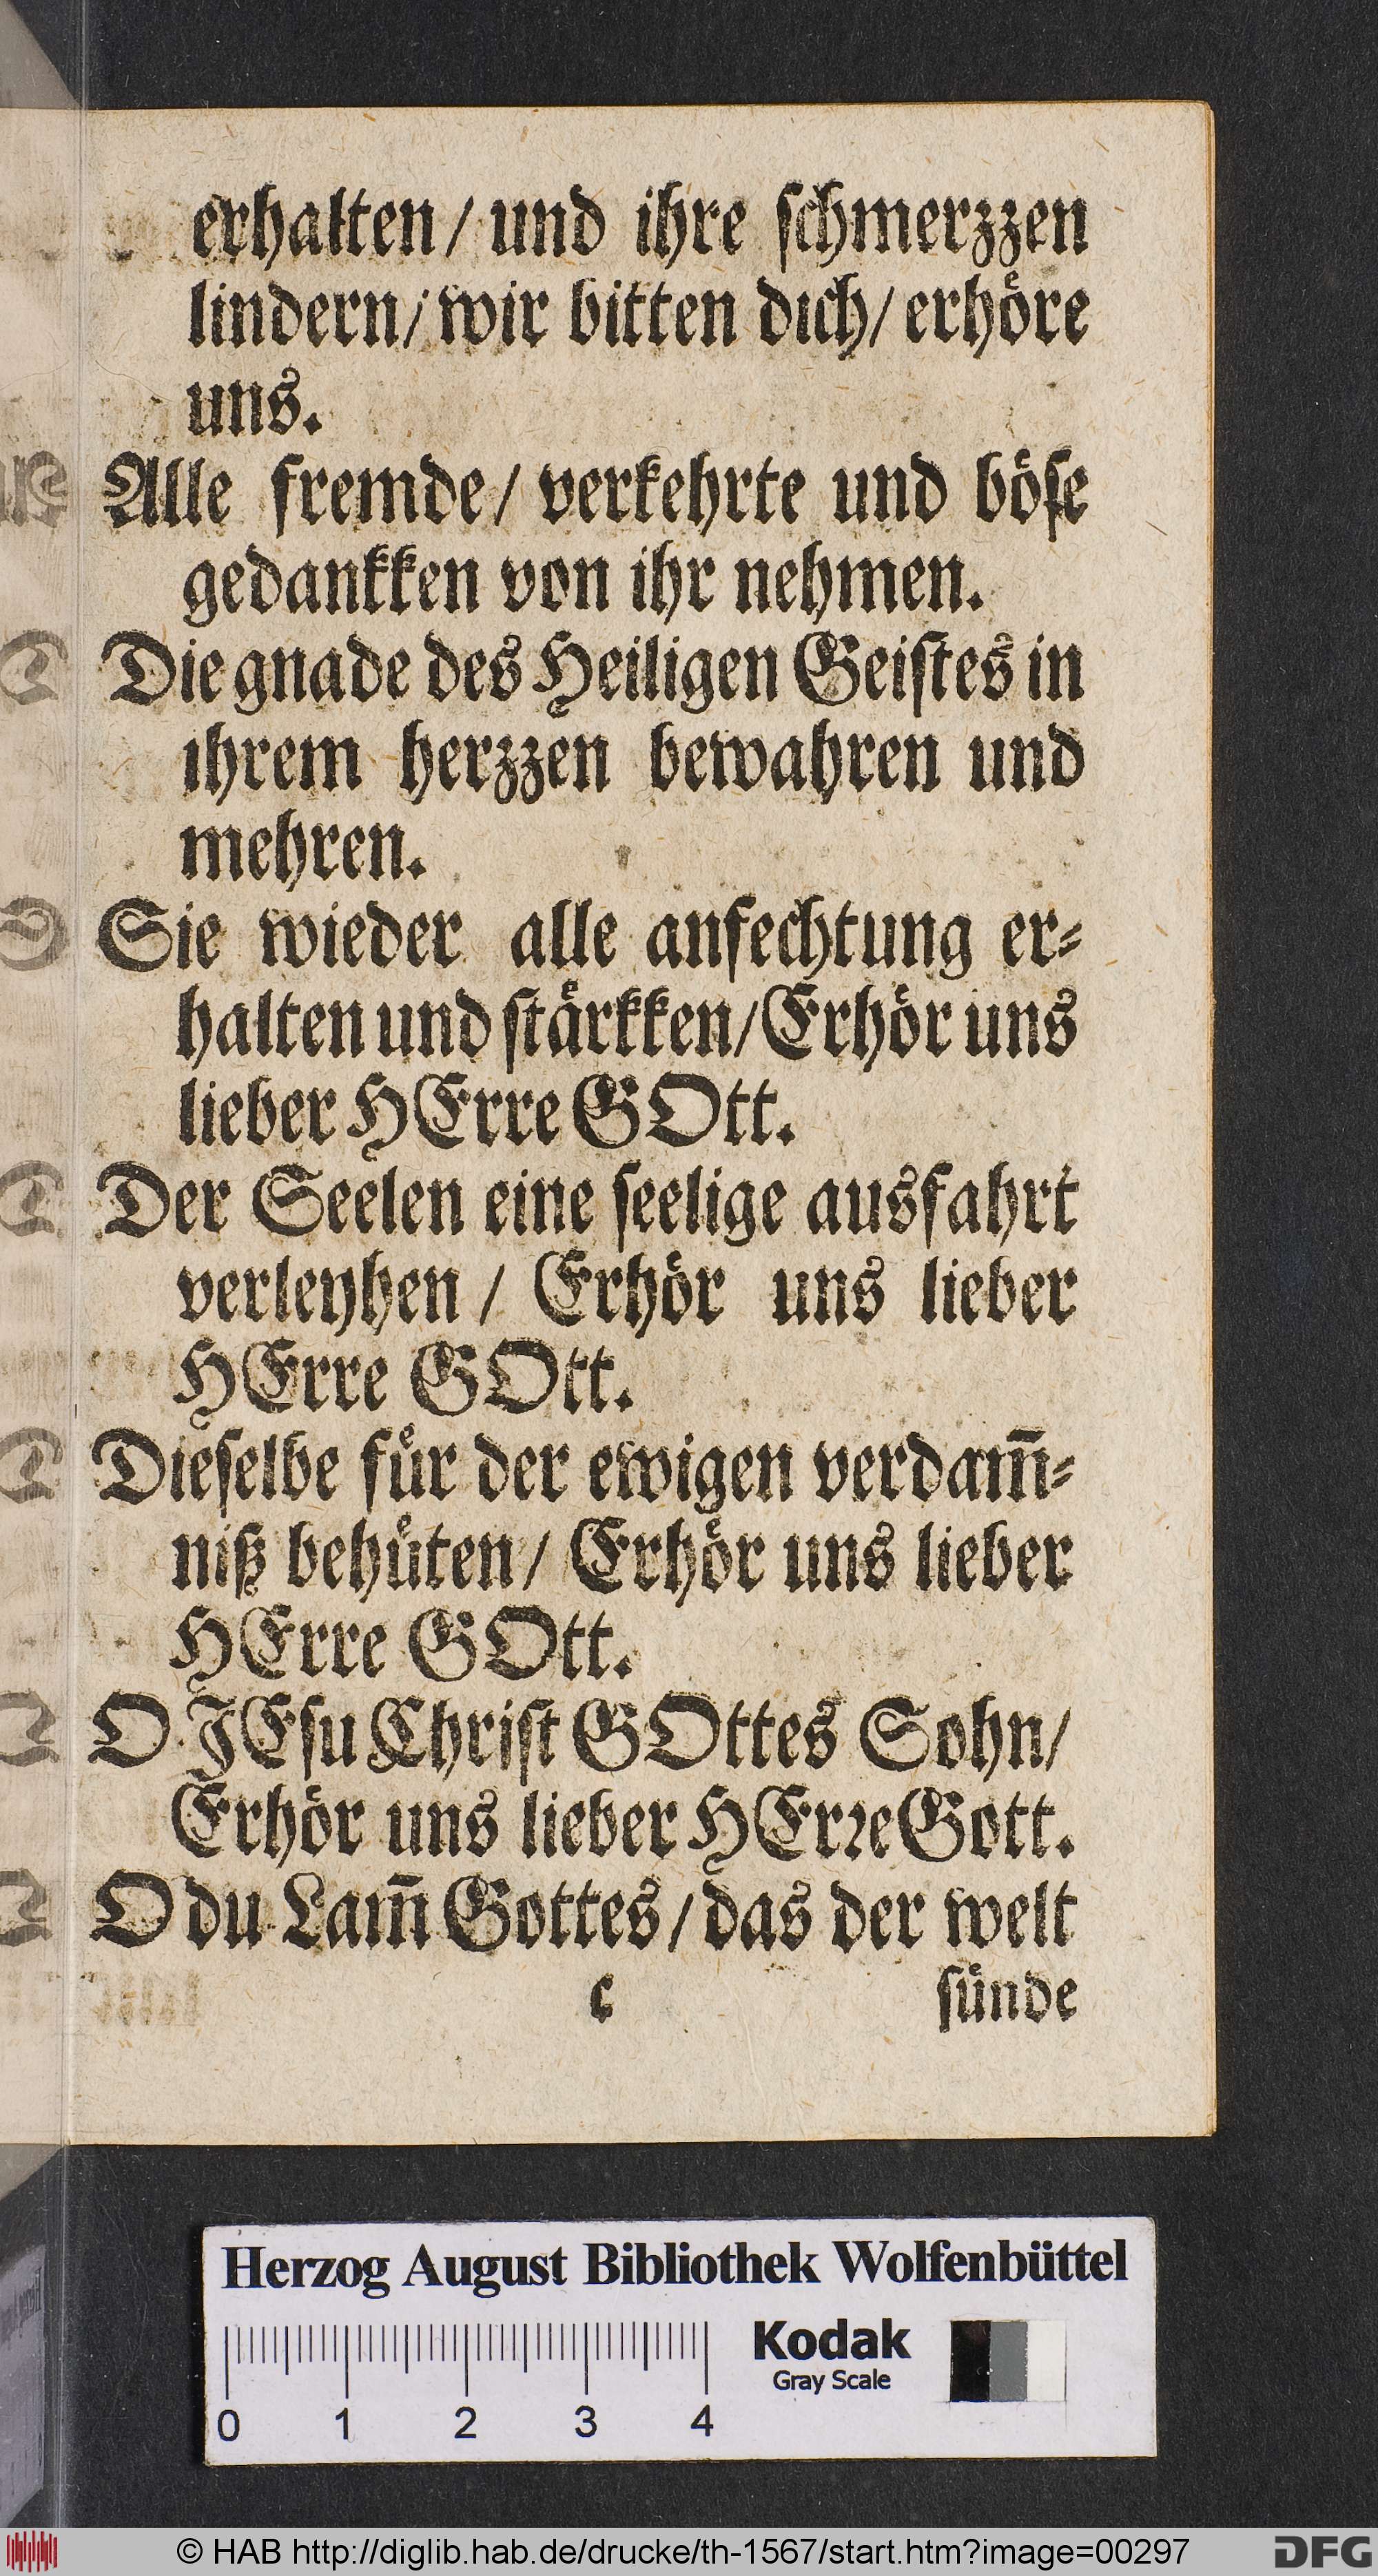 erhalten / und ihre ſchmerzzen
lindern / wir bitten dich / erhoͤre
uns.
Alle fremde / verkehrte und boͤſe
gedankken von ihr nehmen.
Die gnade des Heiligen Geiſtes in
ihrem herzzen bewahren und
mehren.
Sie wieder alle anfechtung er⸗
halten und ſtaͤrkken / Erhoͤr uns
lieber HErre GOtt.
Der Seelen eine ſeelige ausfahrt
verleyhen / Erhoͤr uns lieber
HErre GOtt.
Dieſelbe fuͤr der ewigen verdam̃⸗
niß behuͤten / Erhoͤr uns lieber
HErre GOtt.
O JEſu Chriſt GOttes Sohn /
Erhoͤr uns lieber HErꝛe Gott.
O du Lam̃ Gottes / das der welt
c ſuͤnde
Herzog August Bibliothek Wolfenbüttel
Kodak
Gray Scale
0 1 2 3 4
© HAB http://diglib.hab.de/drucke/th-1567/start.htm?image=00297
DFG